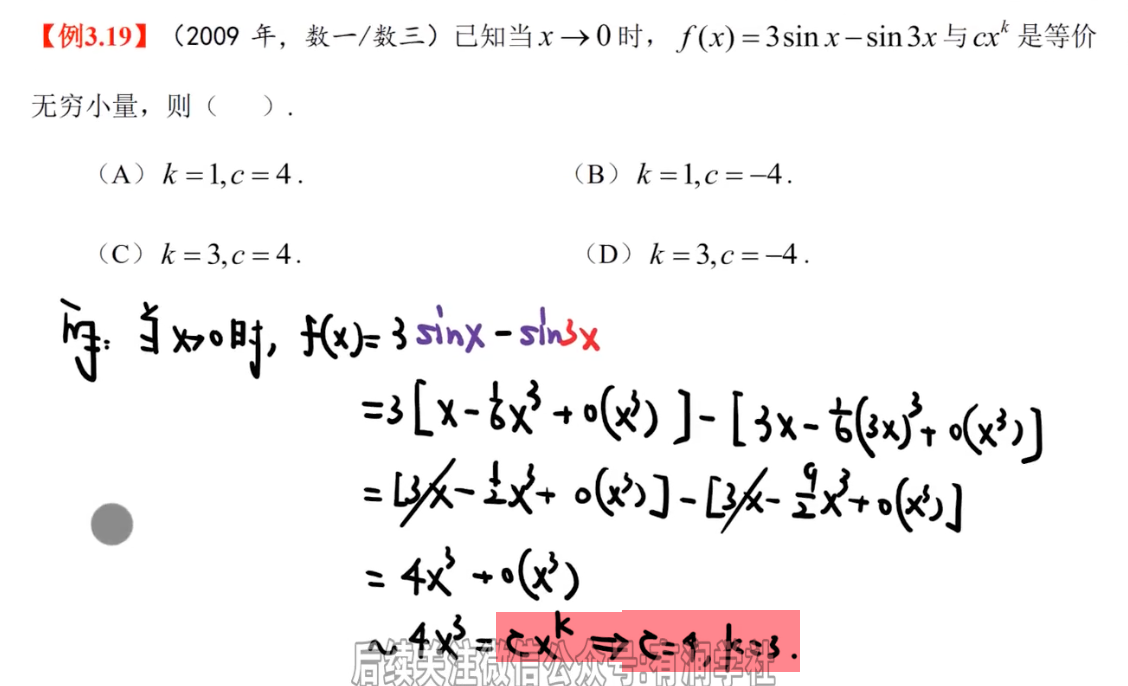 【例3.19】（2009 年，数一/数三）已知当 x→0 时， f(x)=3sin x−sin3x 与 cx^k 是等价
无穷小量，则（ ）.
（A）k=1,c=4.
（B）k=1,c=−4.
（C）k=3,c=4.
（D）k=3,c=−4.
解：当x→0时，f(x)=3sinx-sin3x
=3[x-1/6x³+o(x³)]-[3x-1/6(3x)³+o(x³)]
=[3x-1/2x³+o(x³)]-[3x-9/2x³+o(x³)]
=4x³+o(x³)
~4x³=cx^k⇒c=4,k=3.
后续关注微信公众号:有润学社